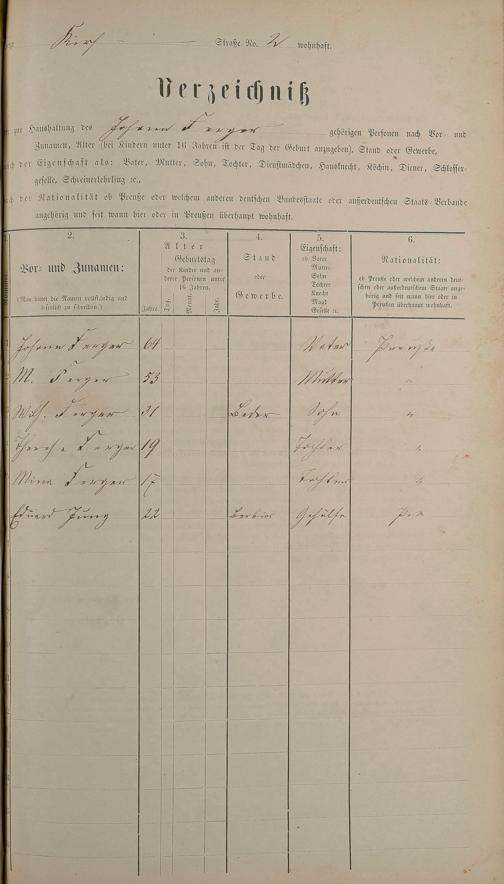 Kirch - - Straße No. 2 wohnhaft.
Verzeichniß
zur Haushaltung des Johann Ferger gehörigen Personen nach Vor- und
Zunamen, Alter (bei Kindern unter 16 Jahren ist der Tag der Geburt anzugeben), Stand oder Gewerbe,
der Eigenschaft als: Vater, Mutter, Sohn, Tochter, Dienstmädchen, Hausknecht, Köchin, Diener, Schlosser-
geselle, Schreinerlehrling ꝛc.,
der Nationalität ob Preuße oder welchem anderen deutschen Bundesstaate oder außerdeutschen Staats-Verbande
angehörig und seit wann hier oder in Preußen überhaupt wohnhaft.
2.
Vor- und Zunamen:
(Man bittet die Namen vollständig und
leserlich zu schreiben.)
3.
Alter
Geburtstag
der Kinder und an-
derer Personen unter
16 Jahren.
Jahre.
Tag.
Monat.
Jahr.
4.
Stand
oder
Gewerbe.
5.
Eigenschaft:
ob Vater
Mutter
Sohn
Tochter
Knecht
Magd
Geselle ꝛc.
6.
Nationalität:
ob Preuße oder welchem anderen deut-
schen oder außerdeutschem Staate ange-
hörig und seit wann hier oder in
Preußen überhaupt wohnhaft.
Johann Ferger 64 Vater Preuße
M. Ferger 53 Mutter "
Wilh. Ferger 31 Sohn "
Ferger 19 Tochter "
Mina Ferger 17 Tochter "
Eduard Jung 22 Gehülfe